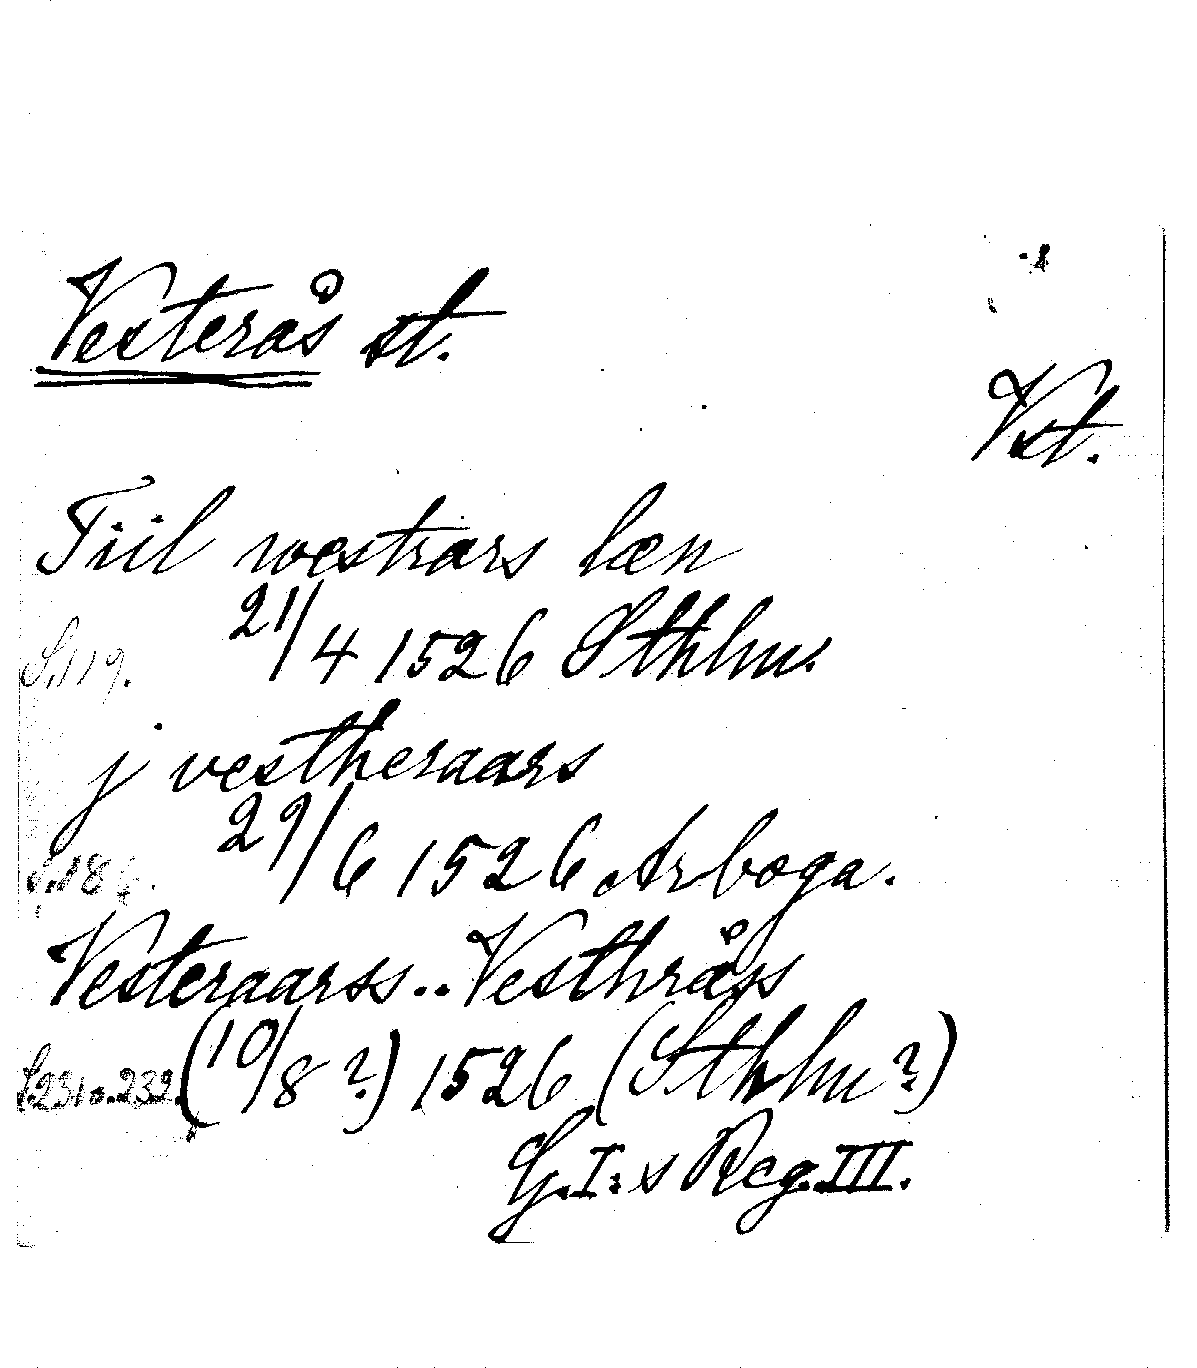 Vesterås st.
Vst.
Tiil westrars læn
S.119. 21/4 1526 Sthlm.
j vestheraars
29/6 1526 Arboga.
Vesteraarss..Vesthråss
S.231 o. 232. (10/8 ?) 1526 (Sthlm?)
G.I:s Reg. III.